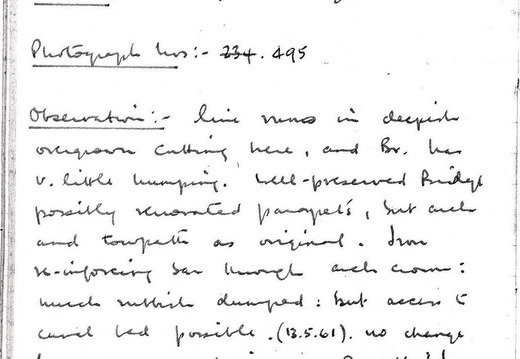 Photograph Nos:- 234. 495
Observation:- line runs in deepish
overgrown cutting here, and Br. has
v. little humping. Well-preserved Bridge
possibly renovated parapets, but arch
and towpath as original. Iron
re-inforcing bar through arch crown:
much rubbish dumped: but access to
canal bed possible. (13.5.61). No change